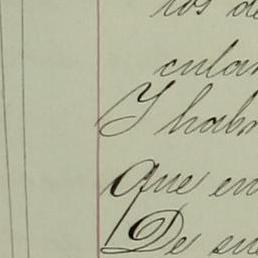 ros de
cular
Y habr
Que en
De su